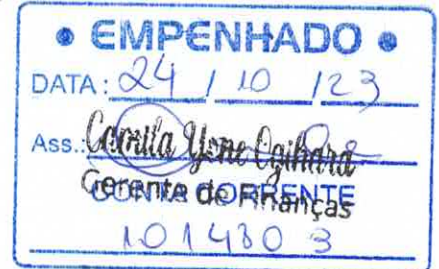 • EMPENHADO •
DATA: 24 / 10 / 23
Ass.:
Camila Yone Ogihara
Gerente de Finanças
CONTA CORRENTE
101430 3